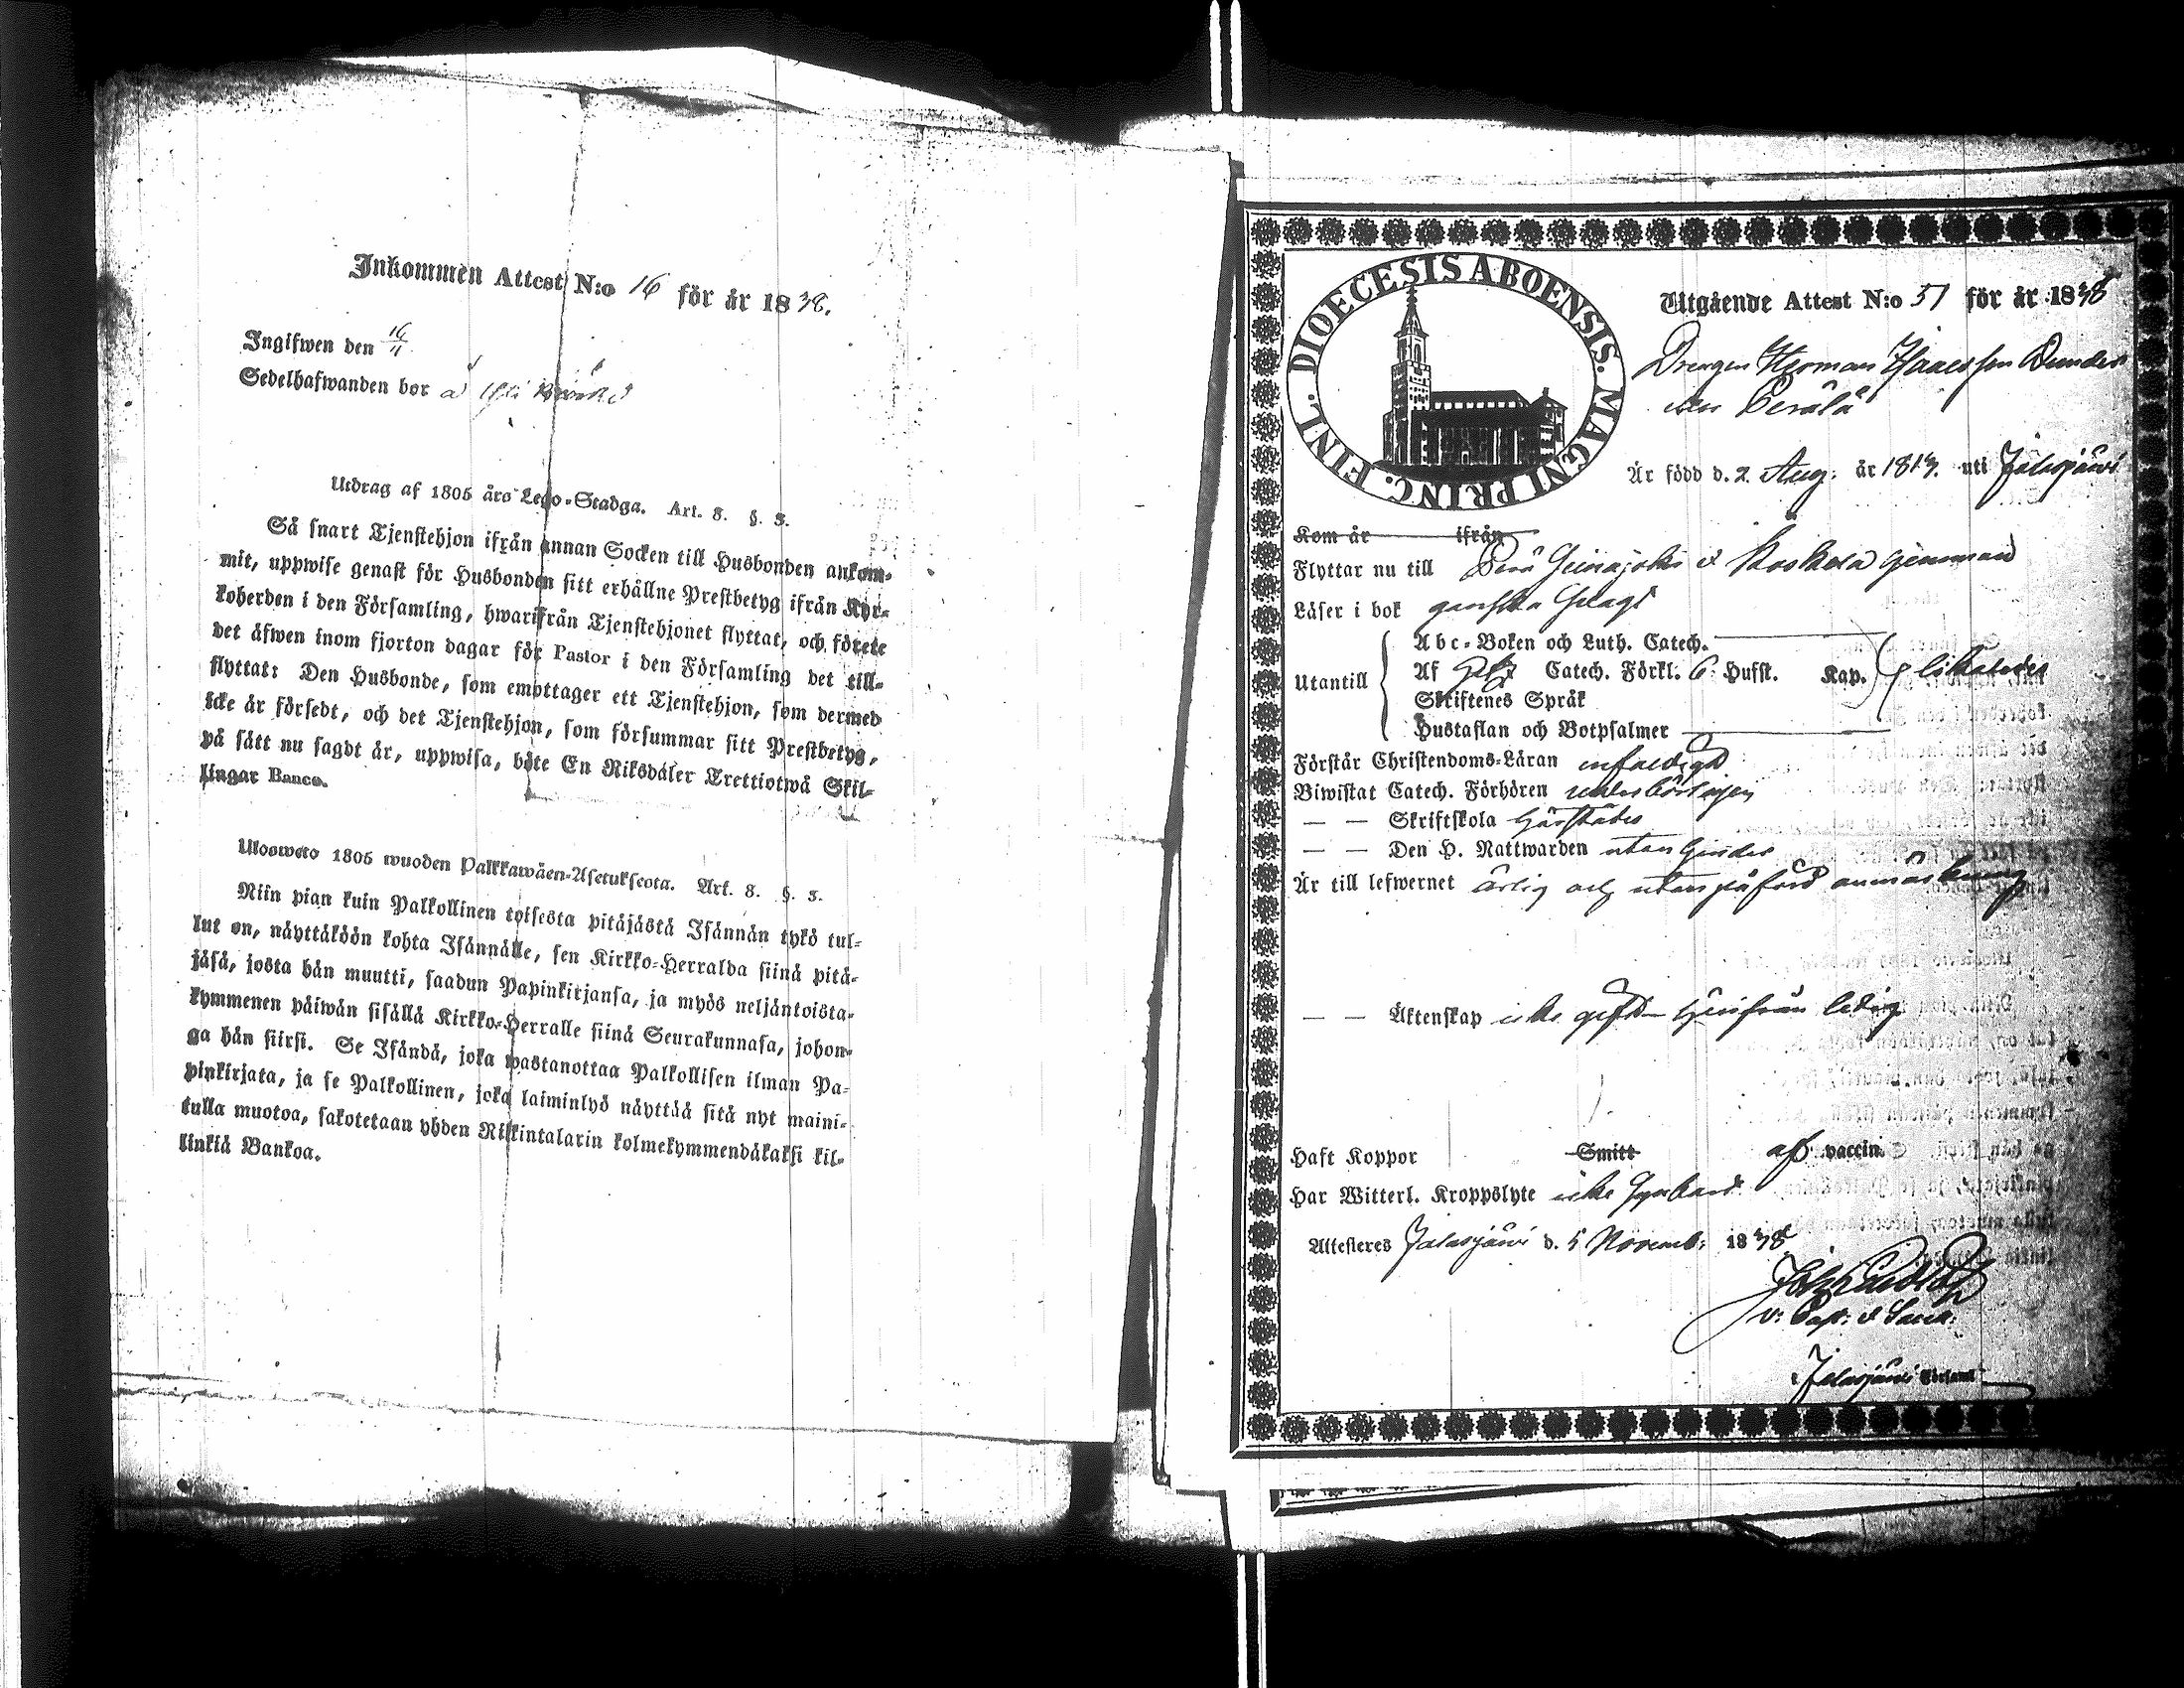 Inkommen Attest N:o 16 för år 1838.
Ingifwen den 16/11
Sedelhafwanden bor å
Utdrag af 1805 års Lego-Stadga. Art. 8. §. 3.
Så snart Tjenstehjon ifrån annan Socken till Husbonden ankom-
mit, uppwise genast för Husbonden sitt erhållne Prestbetyg ifrån Kyr-
koherden i den Församling, hwarifrån Tjenstehjonet flyttat, och förete
det äfwen inom fjorton dagar för Pastor i den Församling det till-
flyttat: Den Husbonde, som emottager ett Tjenstehjon, som dermed
icke är försedt, och det Tjenstehjon, som försummar sitt Prestbetyg,
på sätt nu sagdt är, uppwisa, böte En Riksdaler Trettiotwå Skil-
lingar Banco.
Ulosweto 1805 wuoden Palkkawäen-Asetuksesta. Art. 8. §. 3.
Niin pian kuin Palkollinen toisesta pitäjästä Isännän tykö tul-
lut on, näyttäköön kohta Isännälle, sen Kirkko-Herralda siinä pitä-
jäsä, josta hän muutti, saadun Papinkirjansa, ja myös neljäntoista-
kymmenen päiwän sisällä Kirkko-Herralle siinä Seurakunnasa, johon-
ga hän siirsi. Se Isändä, joka wastanottaa Palkollisen ilman Pa-
pinkirjata, ja se Palkollinen, joka laiminlyö näyttää sitä nyt maini-
tulla muotoa, sakotetaan yhden Riikintalarin kolmekymmendäkaksi kil-
linkiä Bankoa.
DIOECESIS ABOENSIS. MAGNI PRINC. FINL.
Utgående Attest N:o 51 för år 1838
Drengen Herman Isaacsson
Perälä
Är född d. 2 Aug: år 1817. uti Jalasjärvi
Kom år ifrån
Flyttar nu till Perä Seinäjoki Koskela
Läser i bok ganska svagt
Utantill
Abc-Boken och Luth. Catech.
Af Catech. Förkl. 6 Hufst. Kap. likaledes
Skriftenes Språk
Hustaflan och Botpsalmer
Förstår Christendoms-Läran enfaldigt
Biwistat Catech. Förhören wederbörligen
— — Skriftskola härstädes
— — Den H. Nattwarden utan hinder
Är till lefwernet ärlig och utan påförd anmärkning
— — Äktenskap icke gift härifrån ledig
Haft Koppor Smitt af vaccin
Har Witterl. Kroppslyte icke synbart
Attesteras Jalasjärvi d. 5 Novemb: 1838
v: Past: & Sacell:
i Jalasjärvi Församl